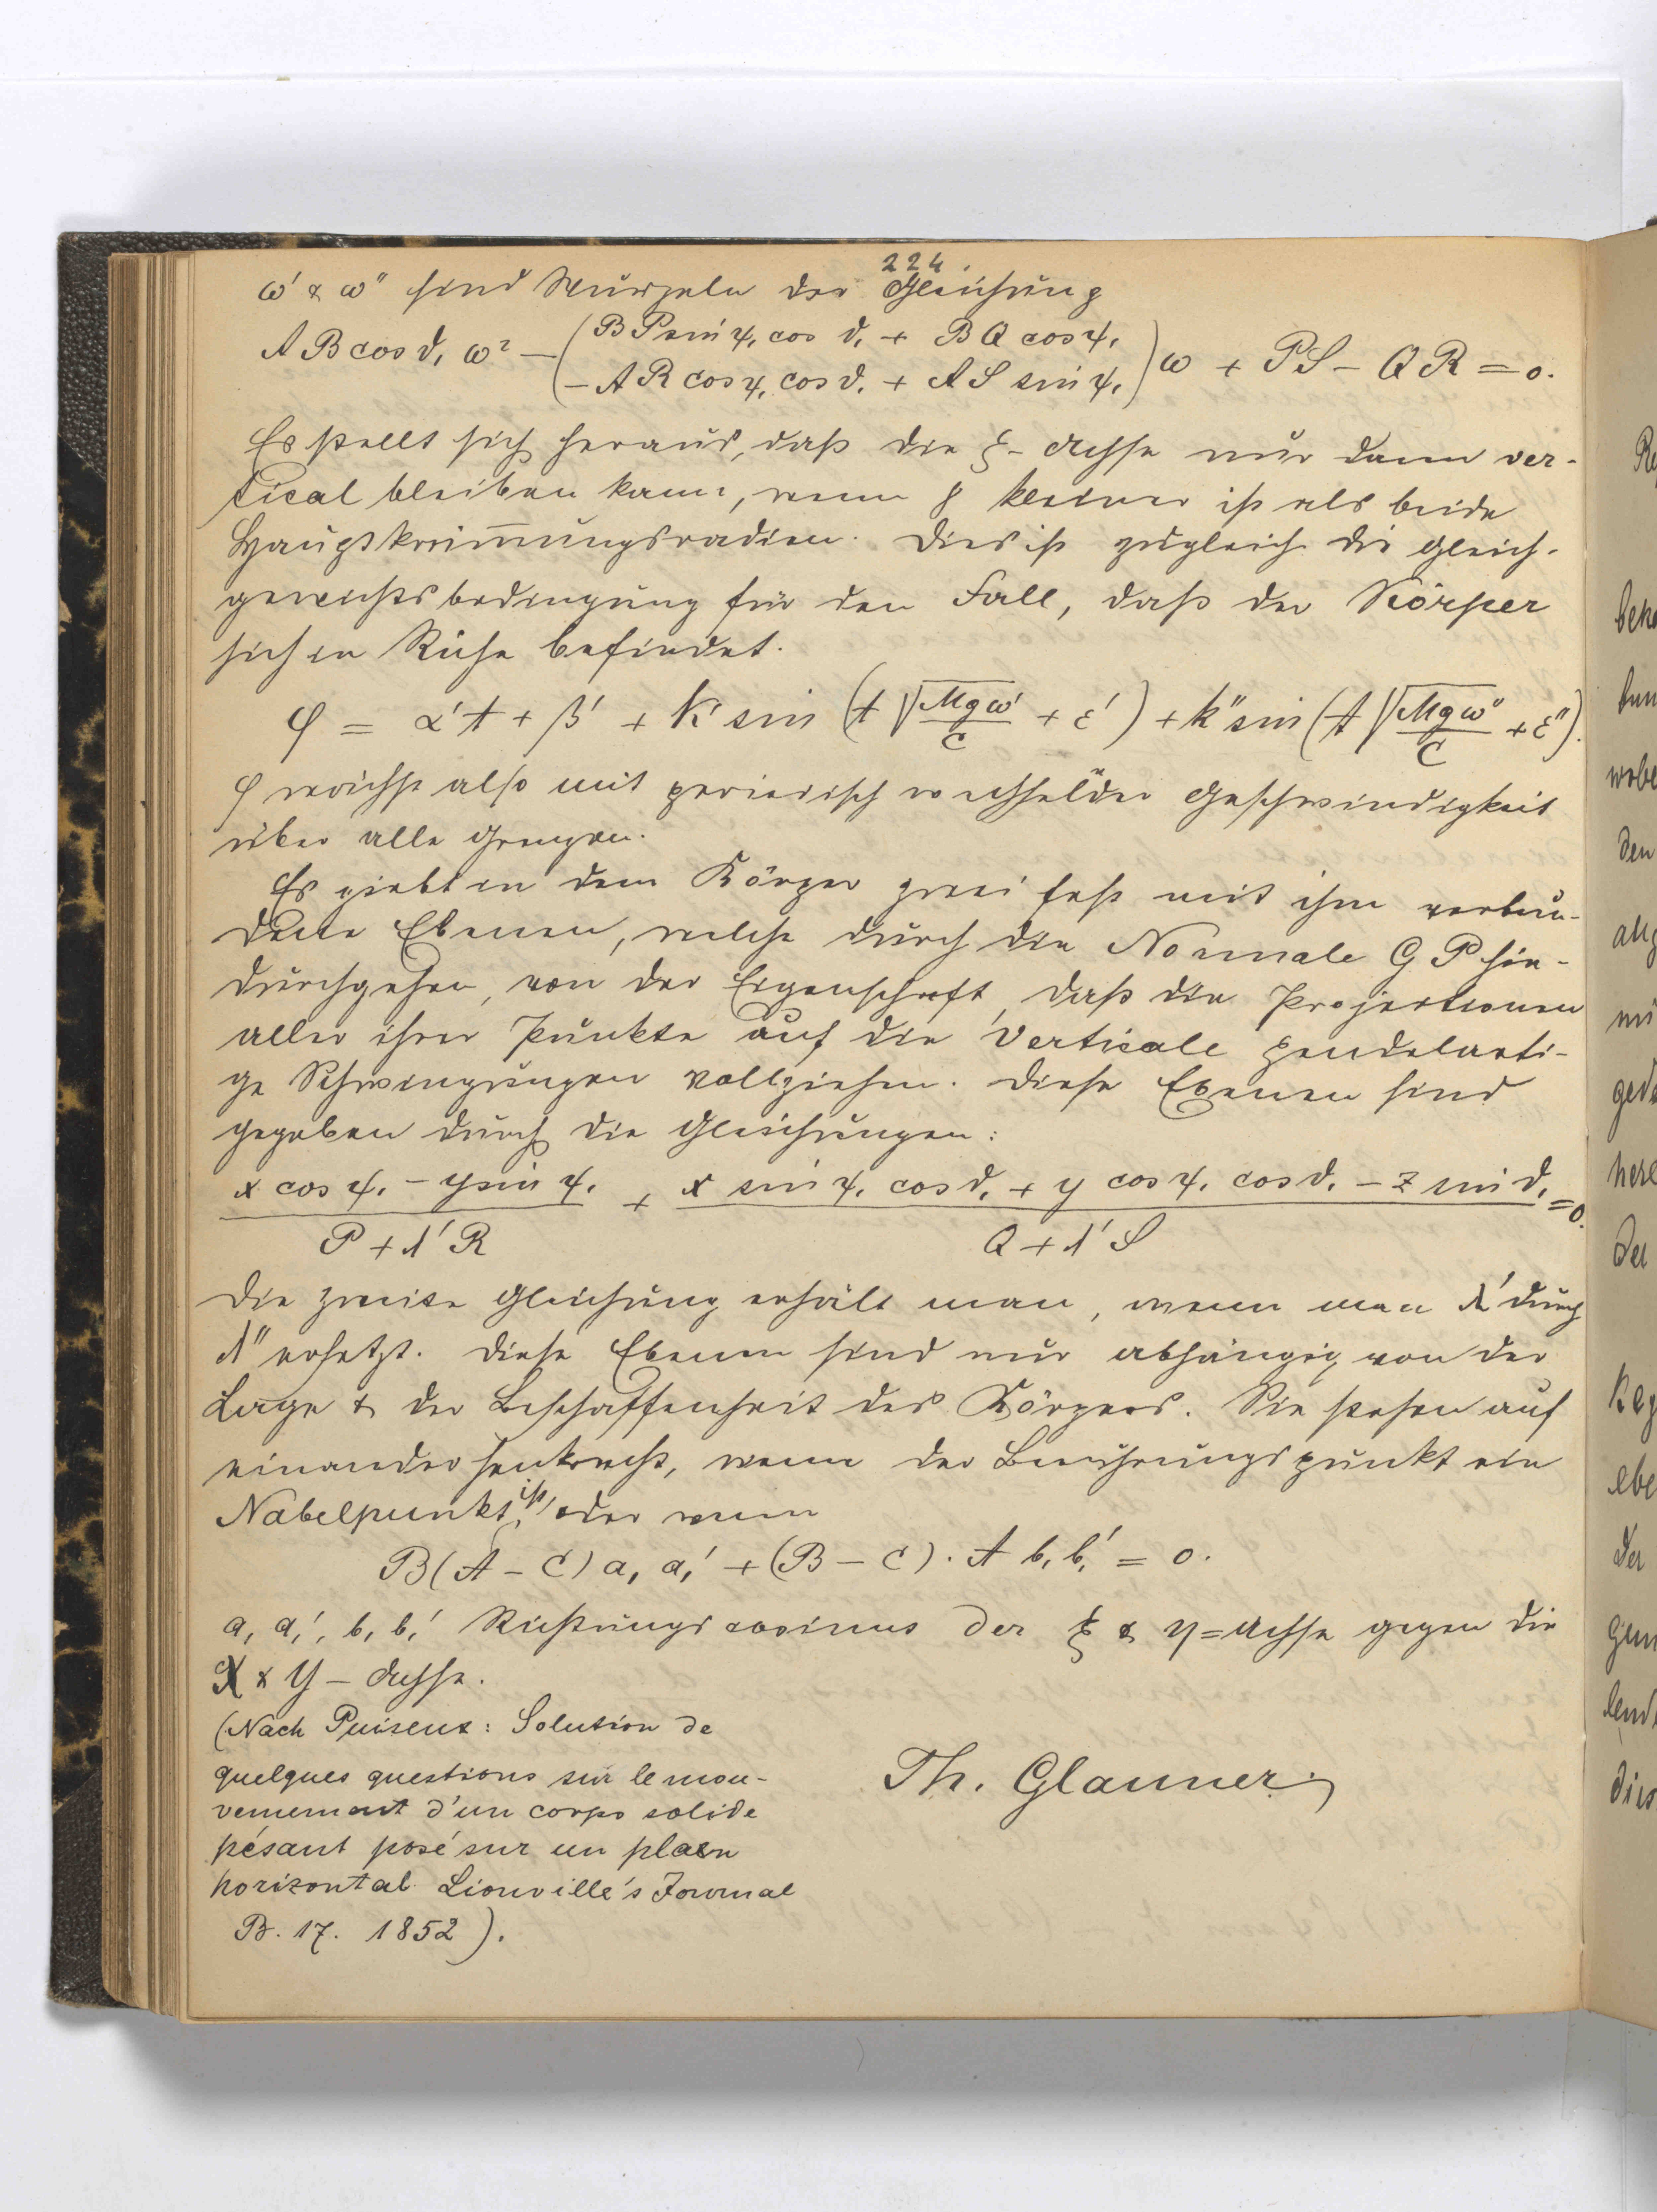 224.
ω' & ω" sind Wurzeln der Gleichung
AB cos ϑ, ω² − (BP sin ψ, cos ϑ, + BQ cos ψ, − AR cos ψ, cos ϑ, + AS sin ψ,) ω + PS − QR = 0.
Es stellt sich heraus, daß die ξ-Achse nur dann ver-
tical bleiben kann, wenn kleiner ist als beide
Hauptkrüm̅ungsradien. Dies ist zugleich die Gleich-
gewichtsbedingung für den Fall, daß der Körper
sich in Ruhe befindet.
φ = α't + β' + K' sin (t √Mgω'/C + ε') + k" sin (t √Mgω"/C + ε").
φ wächst also mit periodisch wechselnder Geschwindigkeit
über alle Grenzen.
Es giebt in dem Körper zwei fest mit ihm verbun-
dene Ebenen, welche durch die Normale GP hin-
durchgehen, von der Eigenschaft, daß die Projectionen
aller ihrer Punkte auf die Verticale pendelarti-
ge Schwingungen vollziehen. Diese Ebenen sind
gegeben durch die Gleichungen:
(x cos ψ, − y sin ψ,)/(P + λ'R) + (x sin ψ, cos ϑ, + y cos ψ, cos ϑ, − z sin ϑ,)/(Q + λ'S) = 0.
Die zweite Gleichung erhält man, wenn man λ' durch
λ" ersetzt. Diese Ebenen sind nur abhängig von der
Lage & der Beschaffenheit des Körpers. Sie stehen auf
einander senkrecht, wenn der Berührungspunkt ein
Nabelpunkt ist, oder wenn
B(A − C) a, a,' + (B − C) · A b, b,' = 0.
a, a,', b, b,' Richtungscosinus der ξ & η=Achse gegen die
X & Y − Achse.
(Nach Puiseux: Solution de
quelques questions sur le mou-
vement d'un corps solide
pésant posé sur un plan
horizontal. Liouville's Journal
B. 17. 1852).
Th. Glauner.